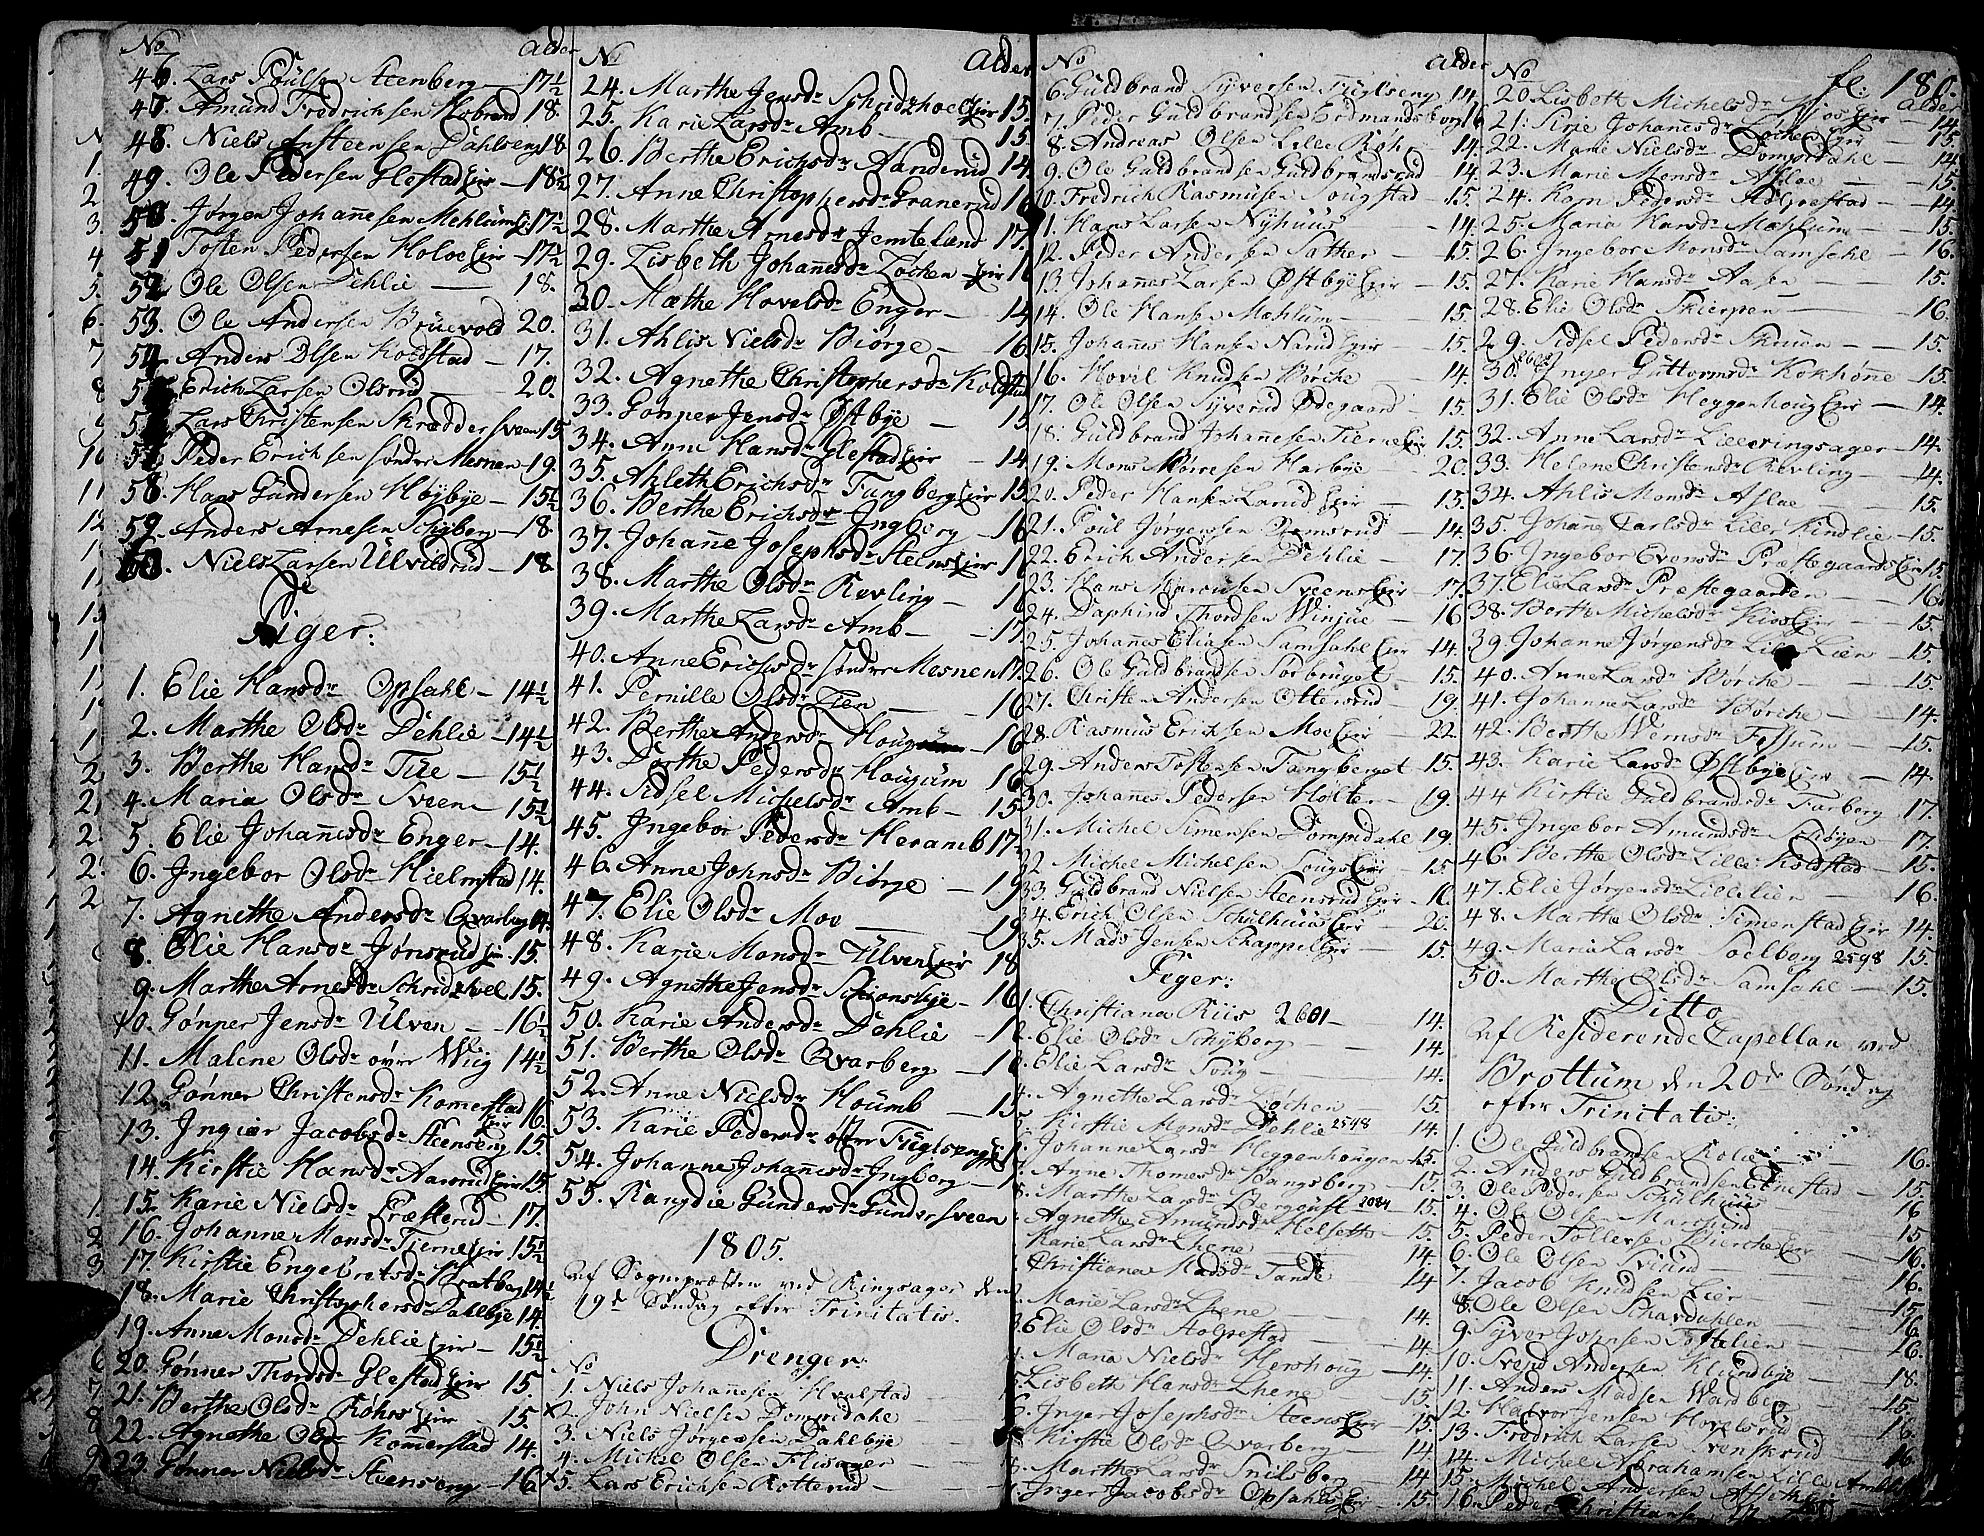 No Alder
46. Lars Poulsen Steenberg — 17½
47. Amund Fredrichsen Hobrend 18.
48. Niels Ansteensen Dahlseng 18
49. Ole Pedersen Glestad Eier — 18½
50. Jørgen Johannesen Mehlum E. 17½
51 Tosten Pedersen Holve Eier — 17½
52 Ole Olsen Dehlie — 18.
53. Ole Andersen Bruevold 20.
54. Anders Olsen Koldstad — 17.
Erich Larsen Olsrud — 20.
Lars Christensen Skræddersveen 15
57 Peder Erichsen søndre Mesnen 19.
58. Hans Gundersen Høybye — 15½
59. Anders Arnesen Schyberg — 18
60. Niels Larsen Ulvildrud — 18
De
Piger:
1. Elie Hansdr Opsahl — 14½
2. Marthe Olsdr Dehlie — 14½
3. Berthe Hansdr Tue — 15½
4. Maria Olsdr Sveen — 15½
5. Elie Johannesdr Enger — 14.
6. Ingebor Olsdr Hielmstad 14.
7. Agnethe Andersdr Qvarberg 14.
8. Elie Hansdr Jønsrud Eier 15.
9. Marthe Arnesdr Schridshoel 15.
10. Gønner Jensdr Ulven — 16½
11. Malene Olsdr øvre Wiig 14½
12. Gønner Christensdr Komerstad Eier 16.
13. Ingier Jacobsdr Steenseng 15.
14. Kirstie Hansdr Aasrud Eier 15.
15. Karie Nielsdr Præsterud — 17.
16. Johanne Monsdr Tierne Eier 15½
17. Kirstie Engebretsdr Bratberg 14½
18. Marie Christophersdr Dahlbye 14.
19. Anne Monsdr Dehlie Eier — 15½
20. Gønner Thordsdr Glestad Eier 15.
21. Berthe Olsdr Røhrs Eier — 15.
22. Agnethe Olsdr Komerstad 14.
23 Gønner Nielsdr Steenseng — 16
No Alder
24. Marthe Jensdr Schridshoel Eier 15.
25. Karie Larsdr Amb — 15.
26. Berthe Erichsdr Aanderud 14.
27. Anne Christophersdr Granerud 16
28. Marthe Arnesdr Jemteland 17.
29. Lisbeth Johannesdr Løchen Eier
30. Mæthe Hovelsdr Enger — 14
31. Ahlis Nielsdr Biørge — 16
32. Agnethe Christophersdr Koldstad
33. Gønner Jensdr Østbye — 15
34. Anne Hansdr Glestad Eier — 14.
35. Ahleth Erichsdr Fangberg Eier 15.
36. Berthe Erichsdr Ingberg — 16
37. Johanne Josephsdr Steens Eier
38. Marthe Olsdr Revling —
39. Marthe Larsdr Amb —
40. Anne Erichsdr søndre Mesnen 17.
41. Pernille Olsdr Lien — 16
42. Berthe Andersdr Houg — 16
43. Dorthe Pedersdr Hougum 16
44. Sidsel Michelsdr Amb — 15
45. Ingebor Pedersdr Heramb 17½
46. Anne Johnsdr Biørge — 19
47. Elie Olsdr Moe — 19
48. Karie Monsdr Ulven Eier 18
49. Agnethe Jensdr Schionsbye — 16
50. Karie Andersdr Dehlie —
51. Berthe Olsdr Qvarberg —
52. Anne Nielsdr Houmb — 15
53. Karie Pedersdr øvre Fuglseng
54. Johanne Johannesdr Ingberg —
55. Rangdie Gundersdr Gundersveen
1805.
af Sognpræsten ved Ringsager den
19de Søndag efter Trinitatis.
Drenger:
No
1. Niels Johannesen Hvalstad —
2. John Nielsen Dompidahl —
3. Niels Jørgensen Dahlbye —
4. Michel Olsen Flisager —
5. Lars Erichsen Rotterud —
No Alder
6. Guldbrand Syversen Fuglseng 14.
7. Peder Guldbrandsen Erdmandsborg 16
8. Andreas Olsen Lille Røhr 14.
9. Ole Guldbrandsen Guldbrandsrud — 14.
10. Fredrich Rasmusen Sougstad — 15.
11. Hans Larsen Nyhuus — 14
12. Peder Andersen Sather — 15.
13. Johannes Larsen Østbye Eier — 15.
14. Ole Hansen Mæhlum — 15.
15. Johannes Hansen Narud Eier — 15.
16. Hovel Knudsen Børche — 14.
17. Ole Olsen Syverud Ødegaard — 15.
18. Guldbrand Johannesen Tierne Eier 15.
19. Mons Børresen Harbye — 20.
20. Peder Hansen Larud Eier — 15.
21. Poul Jørgensen Domsrud — 14.
22. Erich Andersen Dehlie — 17.
23. Hans Sveens Eier — 17.
24. Daphind Thordsen Winjue — 16
25. Johannes Eliasen Samsahl Eier 14.
26. Ole Guldbrandsen Sorbruget — 15.
27. Christen Andersen Ottersrud 19
28. Rasmus Erichsen Moe Eier — 22.
29. Anders Tostensen Fangberget — 15.
30. Johannes Pedersen Holter — 19.
31. Michel Simensen Dompidahl 19.
32. Michel Michelsen Sougs Eier — 15.
33. Guldbrand Nielsen Steensrud Eier — 16
34. Erich Olsen Schulhuus Eier — 20.
35. Mads Jensen Schappel Eier — 15.
Piger:
1. Christiana Riis 2601 — 14.
2. Elie Olsdr Schyberg — 14.
3. Elie Larsdr Soug — 14.
4. Agnethe Larsdr Løchen 15.
5. Kirstie Monsdr Dehlie 2548 — 14.
Johanne Larsdr Heggenhougen 15.
Anne Thomesdr Bangsberg — 15.
8. Marthe Larsdr 2084 — 15.
Agnethe Amundsdr Helseth — 15.
Karie Larsdr Lhene — 14.
Christiana Madsdr Tande 14
Marie Larsdr Lhene — 14.
3. Elie Olsdr Holpestad — 14.
Maria Nielsdr Hershoug — 14.
Lisbeth Hansdr Lhene 15.
Inger Josephsdr Steens Eier 15.
Kirstie Olsdr Qvarberg — 14
Marthe Larsdr Snilsberg — 14
Inger Jacobsdr Opsahls Eier — 15.
No fl: 180. Alder
20. Lisbeth Michelsdr Kios Eier — 14.
21. Sirie Johannesdr Løche Eier — 15.
22. Marie Nielsdr Dompidahl — 14.
23. Marie Monsdr Afloe — 15.
24. Karn Pedersdr Holpestad — 14
25. Maria Hansdr Mæhlum — 15.
26. Ingebor Monsdr Samsahl — 16.
27. Karie Hansdr Aasen — 15.
28. Elie Olsdr Skierpen — 16.
29. Sidsel Pedersdr Skruen — 15.
30. Inger Guttormsdr Kokhøne — 15.
31. Elie Olsdr Heggenhoug Eier — 14.
32. Anne Larsdr Lilleringsager — 14.
33. Helene Christensdr Revling — 14.
34. Ahlis Monsdr Afloe — 15.
35. Johanne Carlsdr Lille Kindlie — 15.
36. Ingebor Evensdr Præstegaards Eier 15.
37. Elie Larsdr Præstegaarden — 16.
38. Berthe Michelsdr Kios Eier — 15.
39. Johanne Jørgensdr Lille Lien — 15.
40. Anne Larsdr Børche — 15.
41. Johanne Larsdr Børche — 14.
42. Berthe Wernsdr Fossum — 15.
43. Karie Larsdr Østbye Eier — 14.
44 Kirstie Guldbrandsdr Farberg 17.
45. Ingebor Amundsdr Schøyen — 17.
46. Berthe Olsdr Lille Koldstad — 15.
47. Elie Jørgensdr Lillelien — 16.
48. Marthe Olsdr Simenstad Eier 14.
49. Maria Larsdr Soelberg 2598 15.
50. Marthe Olsdr Samsahl — 15.
Ditto
af Residerende Capellan ved
Brottum den 20de Søndag
efter Trinitatis:
1. Ole Guldbrandsen Rolie — 16.
2. Anders Guldbrandsen Enestad — 15.
3. Ole Pedersen Schulhuus — 16
4. Ole Olsen Marchrud —
5. Peder Tollersen Bierche Eier 15
6. Ole Olsen Sviund — 16.
7. Jacob Knudsen Lier — 16.
8. Ole Olsen Schavdahlen — 15
9. Syver Johnsen Tostelien — 16
10. Svend Andersen Klundbye — 16.
11. Anders Madsen Wardberg — 18
12. Halvor Jensen Hovelsrud — 15.
13. Fredrich Larsen Svenskrud — 16
14. Michel Abrahamsen Lille Amb 16
15. Michel Andersen
16. Peder Christiansen